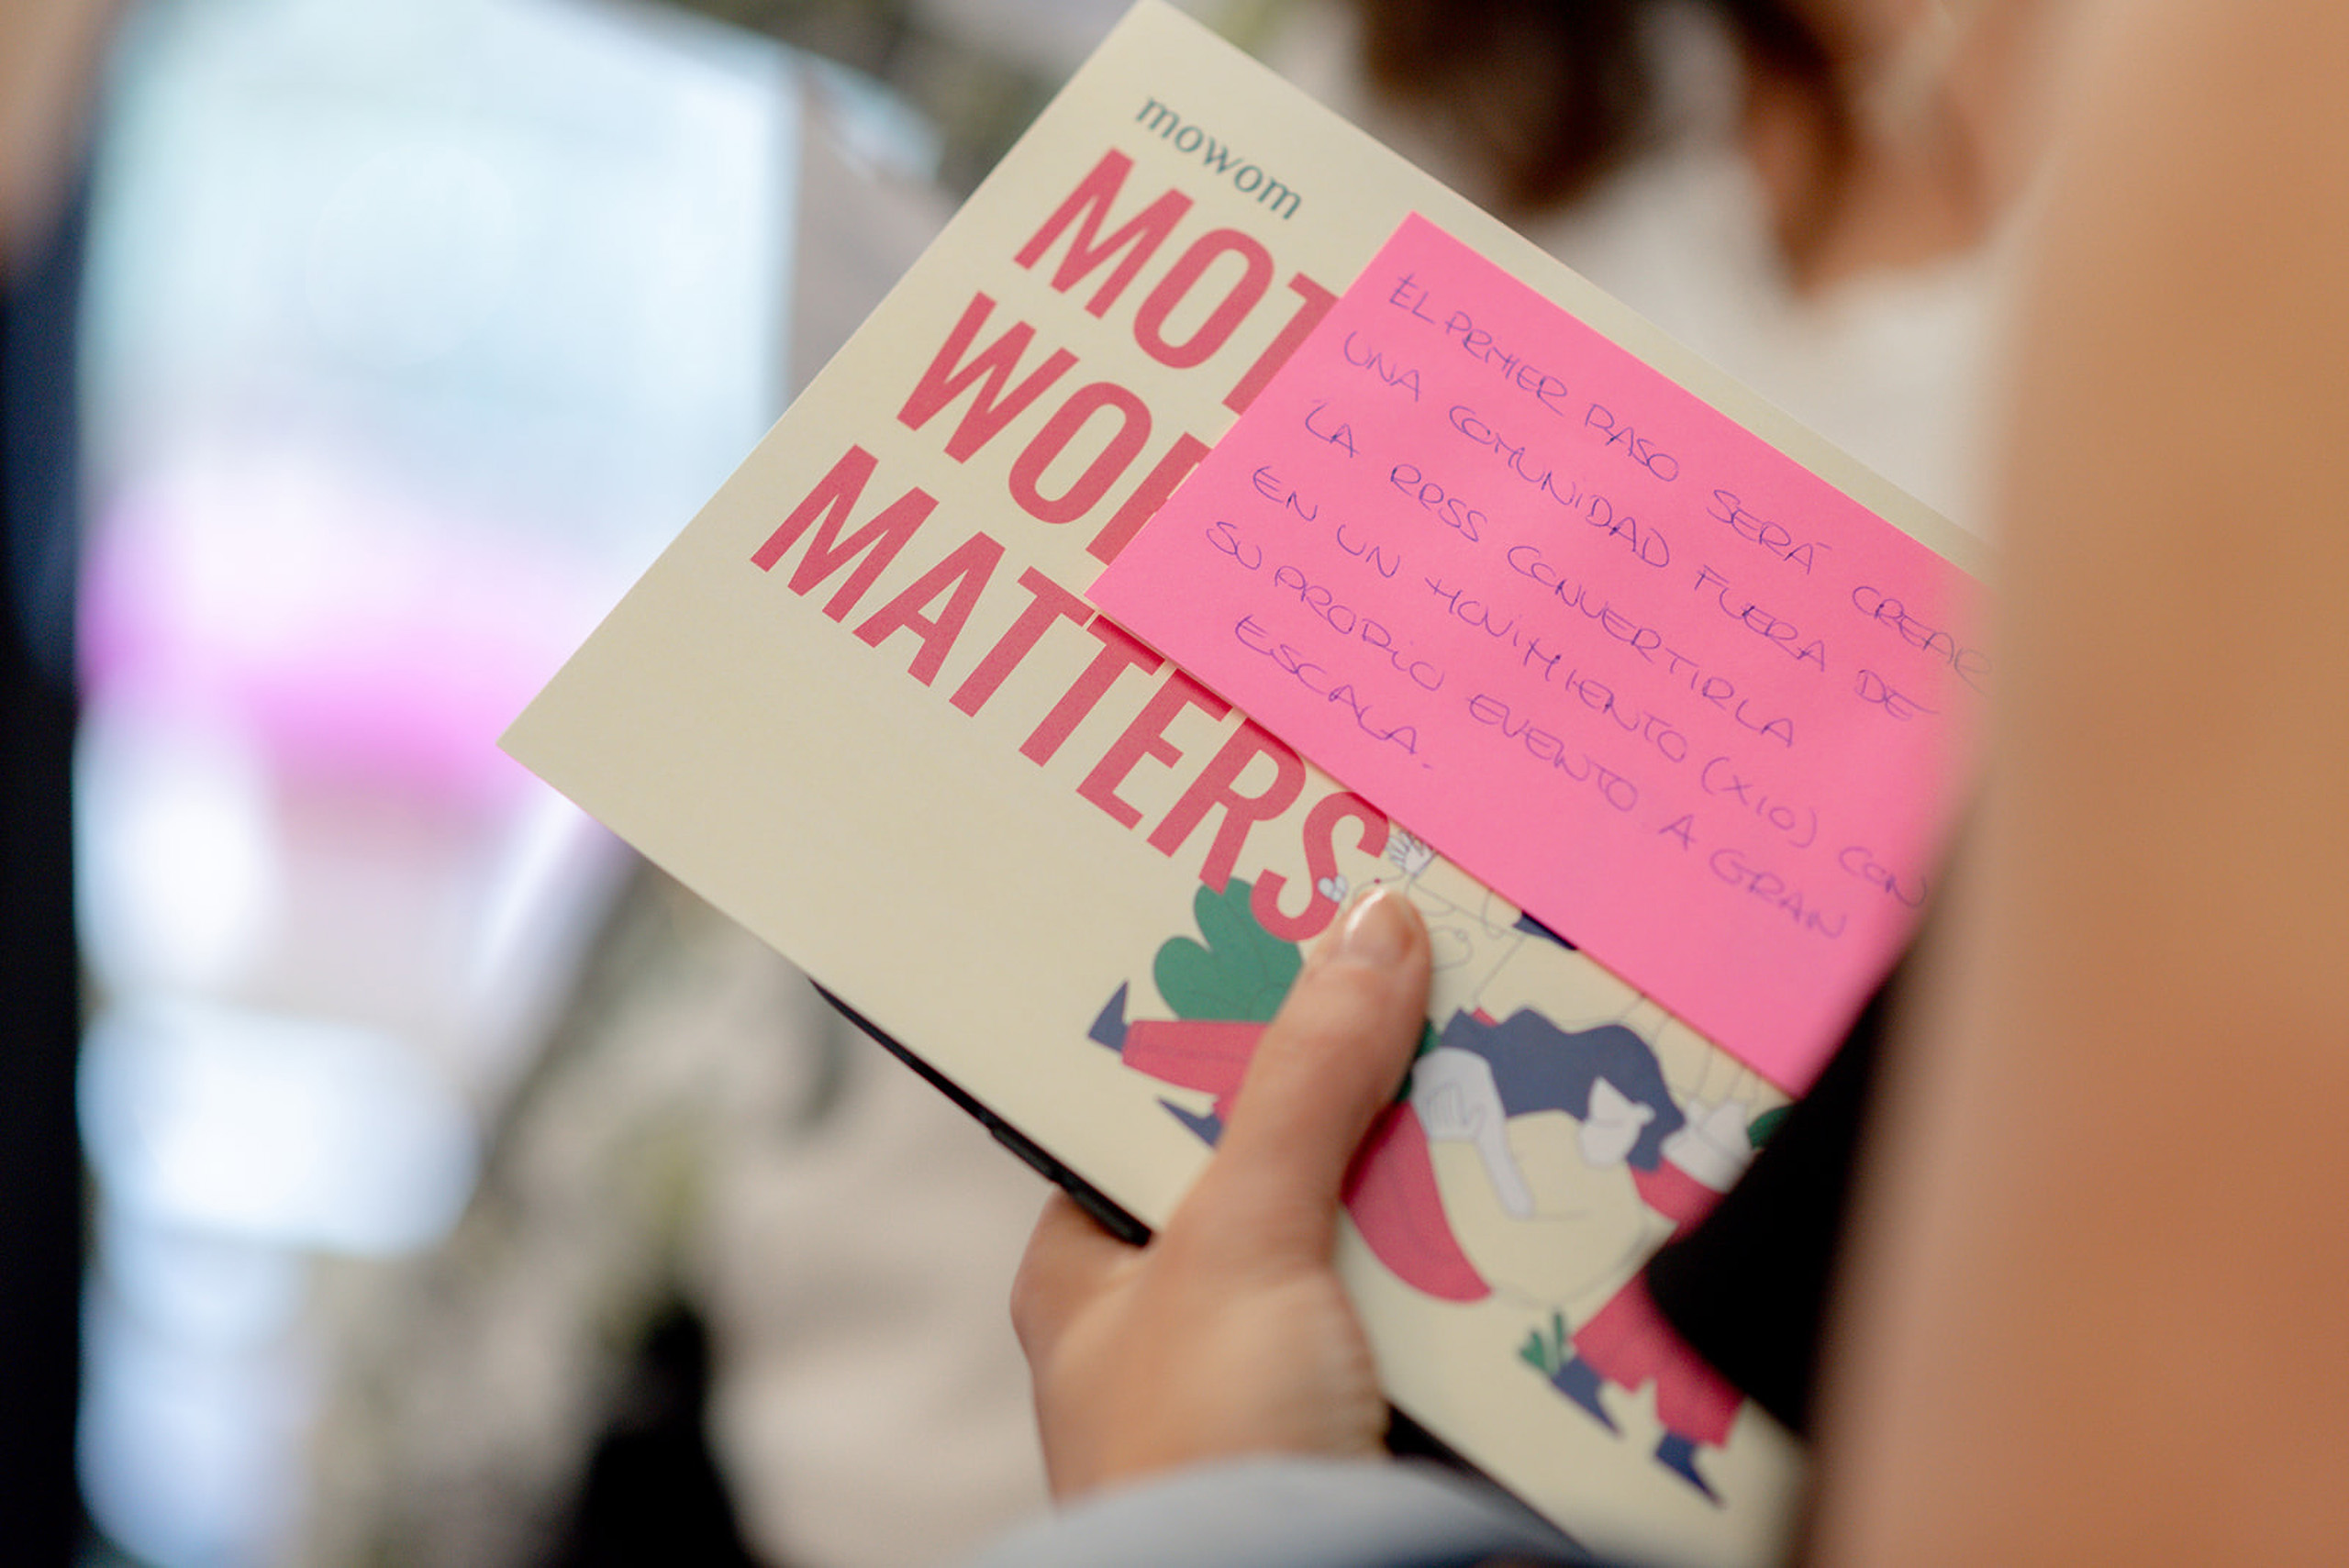 mowom
MOT
WO
MATTERS
EL PRIMER PASO SERÁ CREAR
UNA COMUNIDAD FUERA DE
LA RRSS CONVERTIRLA
EN UN MOVIMIENTO (X10) CON
SU PROPIO EVENTO A GRAN
ESCALA.